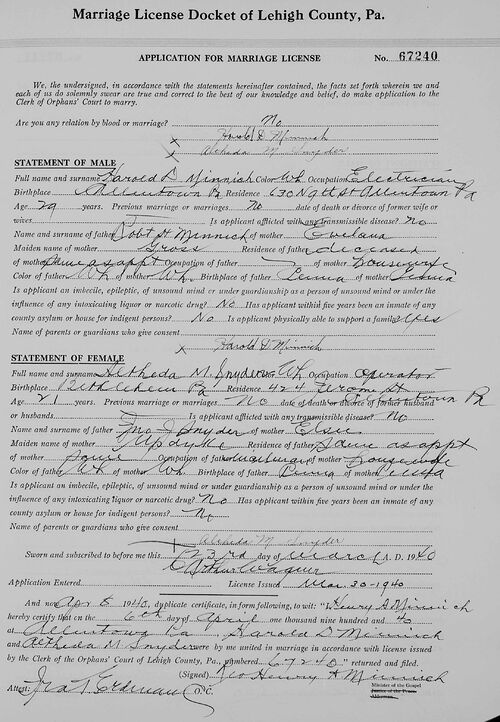 Marriage License Docket of Lehigh County, Pa.
APPLICATION FOR MARRIAGE LICENSE No. 67240
We, the undersigned, in accordance with the statements hereinafter contained, the facts set forth wherein we and
each of us do solemnly swear are true and correct to the best of our knowledge and belief, do make application to the
Clerk of Orphans' Court to marry.
Are you any relation by blood or marriage? No
x Harold D Minnich
x Altheda M. Snyder
STATEMENT OF MALE
Full name and surname Harold D Minnich Color Wh. Occupation Electrician
Birthplace Allentown Pa Residence 630 N 9th St Allentown Pa
Age 29 years. Previous marriage or marriages No date of death or divorce of former wife or
wives Is applicant afflicted with any transmissible disease? No
Name and surname of father Robt H Minnich of mother Eveland
Maiden name of mother Gross Residence of father deceased
of mother same as appt Occupation of father of mother housewife
Color of father Wh of mother Wh. Birthplace of father Penna of mother Penna
Is applicant an imbecile, epileptic, of unsound mind or under guardianship as a person of unsound mind or under the
influence of any intoxicating liquor or narcotic drug? No Has applicant within five years been an inmate of any
county asylum or home for indigent persons? No Is applicant physically able to support a family? Yes
Name of parents or guardians who give consent
x Harold D Minnich
STATEMENT OF FEMALE
Full name and surname Altheda M. Snyder Color Wh. Occupation Operator
Birthplace Bethlehem Pa Residence 424 St Allentown Pa
Age 21 years. Previous marriage or marriages No date of death or divorce of former husband
or husbands Is applicant afflicted with any transmissible disease? No
Name and surname of father Jno J Snyder of mother Elsie
Maiden name of mother Updyke Residence of father same as appt
of mother same Occupation of father of mother housewife
Color of father Wh of mother Wh. Birthplace of father Penna of mother Penna
Is applicant an imbecile, epileptic, of unsound mind or under guardianship as a person of unsound mind or under the
influence of any intoxicating liquor or narcotic drug? No Has applicant within five years been an inmate of any
county asylum or home for indigent persons? No
Name of parents or guardians who give consent
x Altheda M Snyder
Sworn and subscribed to before me this 23rd day of March A. D. 1940
C Arthur Wagner
Application Entered License Issued Mar. 30-1940
And now Apr 8 1940, duplicate certificate, in form following, to wit: "I, Henry A Minnich
hereby certify that on the 6th day of April one thousand nine hundred and 40
at Allentown Pa Harold D Minnich
and Altheda M Snyder were by me united in marriage in accordance with license issued
by the Clerk of the Orphans' Court of Lehigh County, Pa., numbered 67240" returned and filed.
(Signed) Henry A Minnich
Minister of the Gospel
Justice of the Peace
Alderman
Attest: Ira T Erdman O.C.